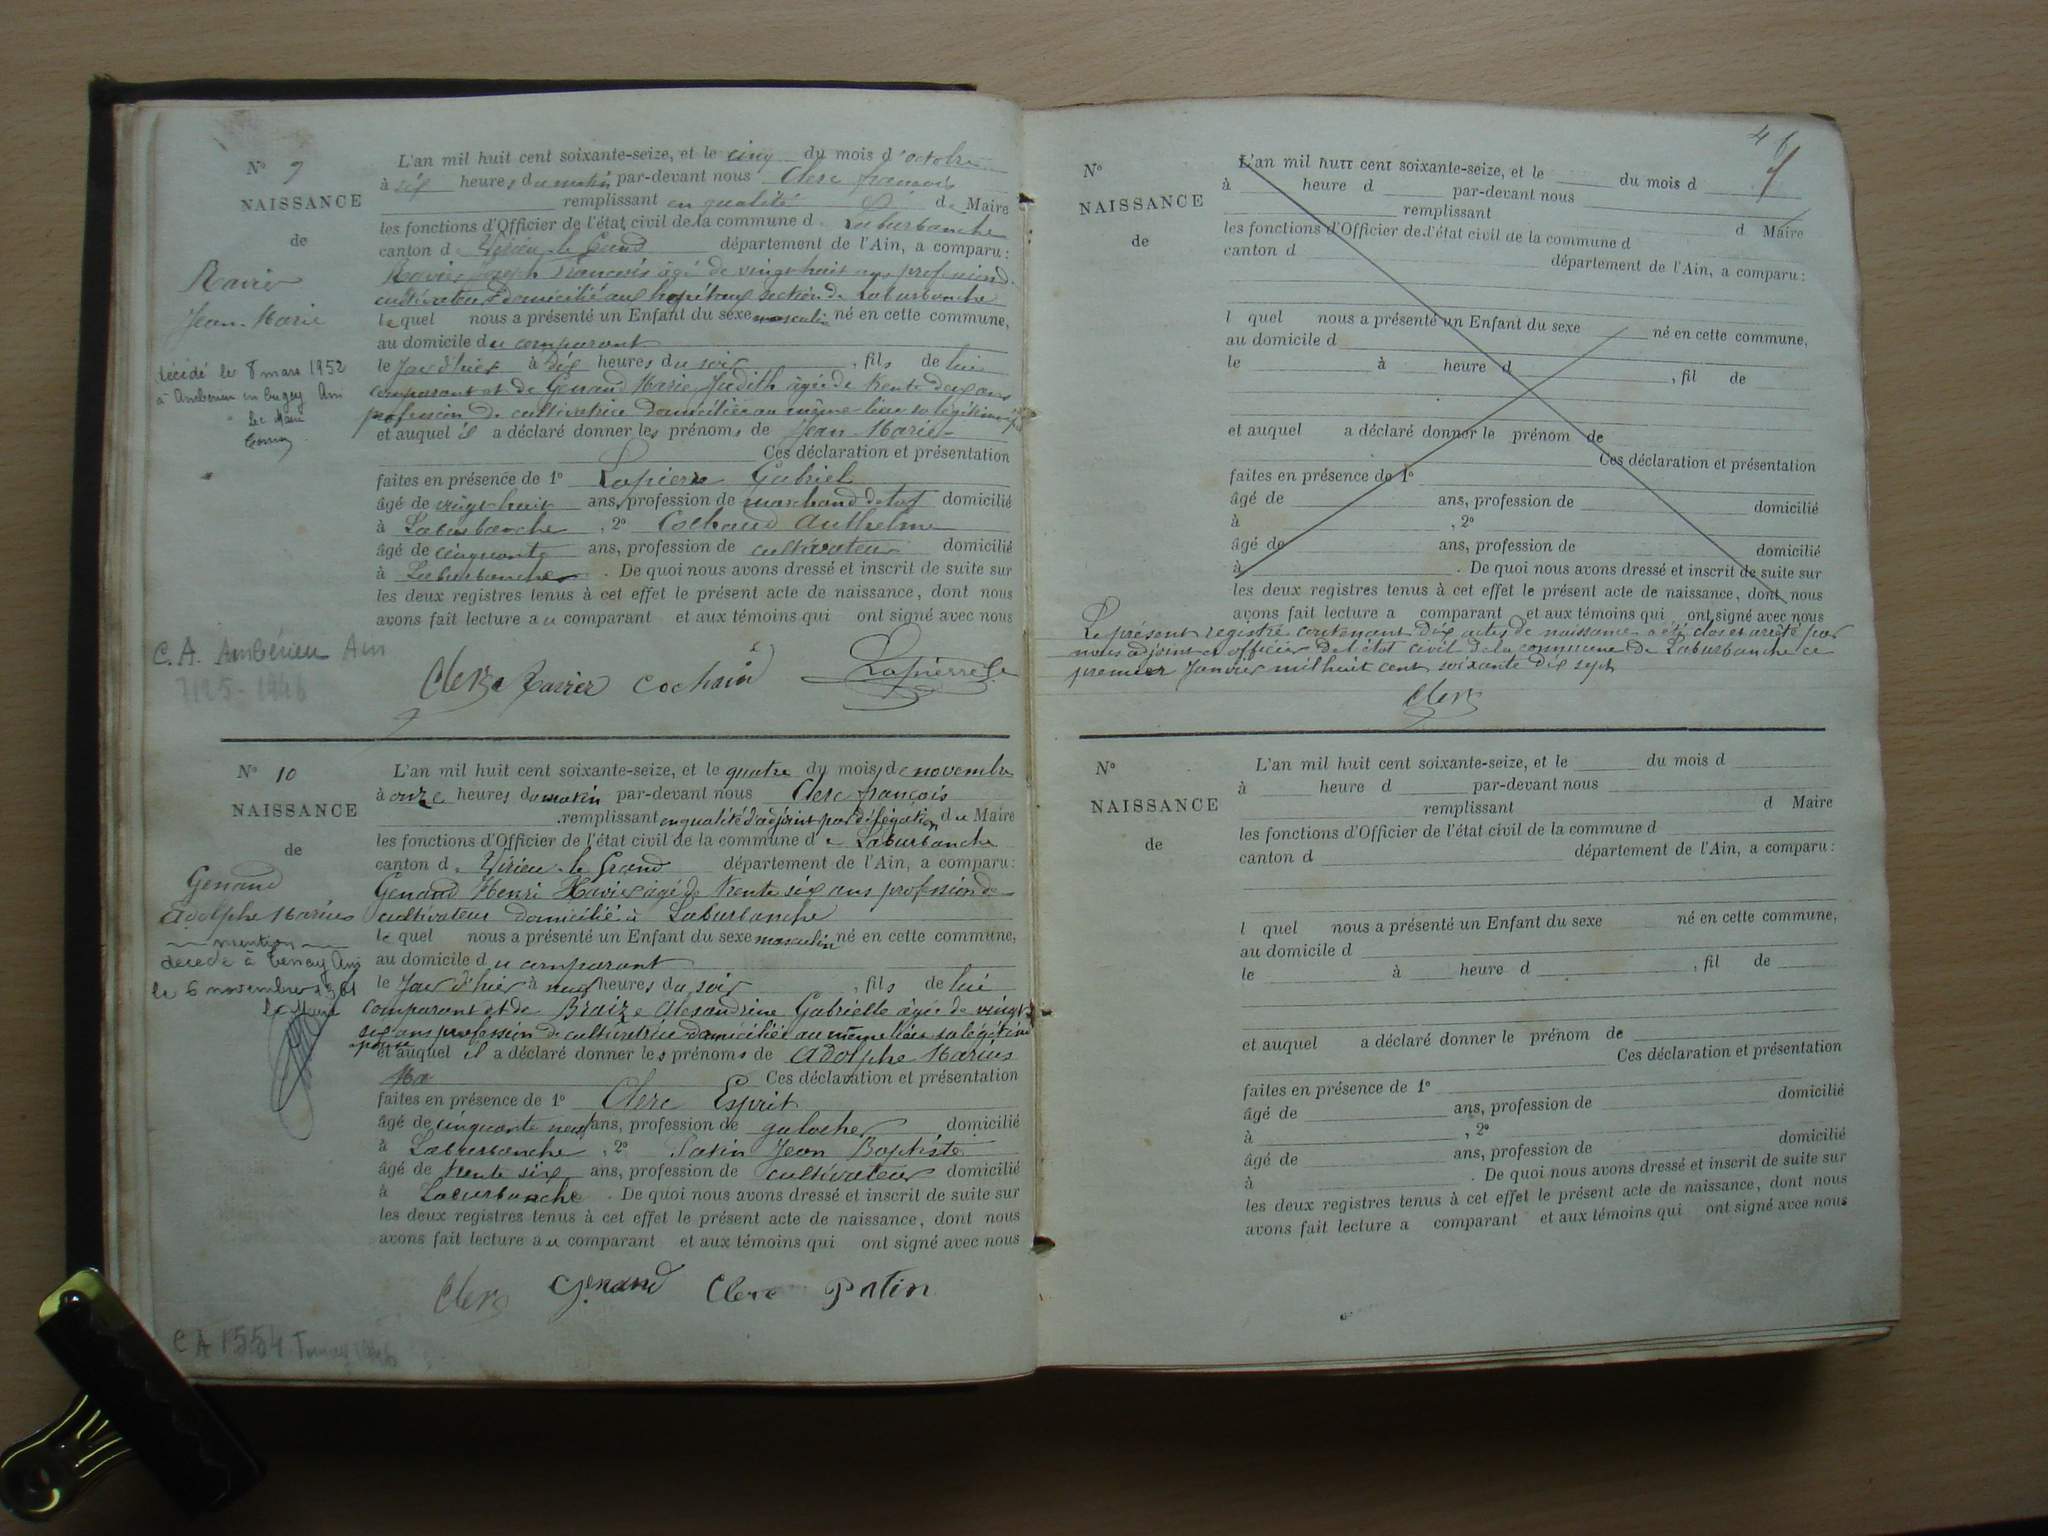 N° 9
NAISSANCE
de
Ravier
Jean-Marie
décédé le 8 mars 1952
à Ambérieu en Bugey Ain
Le Maire
C.A. Ambérieu Ain
L'an mil huit cent soixante-seize, et le cinq du mois d'octobre
à six heures du matin par-devant nous Clerc françois
remplissant en qualité de Maire
les fonctions d'Officier de l'état civil de la commune de Laburbanche
canton de Virieu-le-Grand département de l'Ain, a comparu:
Ravier Joseph François âgé de vingt huit ans profession de
cultivateur domicilié aux hopitaux section de Laburbanche
lequel nous a présenté un Enfant du sexe masculin né en cette commune,
au domicile du comparant
le Jour d'hier à dix heures du soir, fils de lui
comparant et de Genand Marie Judith âgée de trente deux ans
profession de cultivatrice domiciliée au même lieu sa légitime
et auquel il a déclaré donner les prénoms de Jean-Marie
Ces déclaration et présentation
faites en présence de 1° Lapierre Gabriel
âgé de vingt huit ans, profession de marchand de domicilié
à Laburbanche, 2° Cochaud Anthelme
âgé de cinquante ans, profession de cultivateur domicilié
à Laburbanche. De quoi nous avons dressé et inscrit de suite sur
les deux registres tenus à cet effet le présent acte de naissance, dont nous
avons fait lecture au comparant et aux témoins qui ont signé avec nous
Clerc Ravier Cochaud Lapierre
N° 10
NAISSANCE
de
Genand
Adolphe Marius
mention
décédé à Tenay Ain
le 6 novembre 1961
le Maire
CA 1554
L'an mil huit cent soixante-seize, et le quatre du mois de novembre
à onze heures du matin par-devant nous Clerc françois
remplissant en qualité d'adjoint par délégation du Maire
les fonctions d'Officier de l'état civil de la commune de Laburbanche
canton de Virieu-le-Grand département de l'Ain, a comparu:
Genand Henri Xavier âgé de trente six ans profession de
cultivateur domicilié à Laburbanche
lequel nous a présenté un Enfant du sexe masculin né en cette commune,
au domicile du comparant
le Jour d'hier à neuf heures du soir, fils de lui
comparant et de Braize Alexandrine Gabrielle âgée de vingt
six ans profession de cultivatrice domiciliée au même lieu sa légitime
épouse
et auquel il a déclaré donner les prénoms de Adolphe Marius
Ces déclaration et présentation
faites en présence de 1° Clerc Esprit
âgé de cinquante neuf ans, profession de galocher domicilié
à Laburbanche, 2° Patin Jean Baptiste
âgé de trente six ans, profession de cultivateur domicilié
à Laburbanche. De quoi nous avons dressé et inscrit de suite sur
les deux registres tenus à cet effet le présent acte de naissance, dont nous
avons fait lecture au comparant et aux témoins qui ont signé avec nous
Clerc Genand Clerc Patin
46
N°
NAISSANCE
de
L'an mil huit cent soixante-seize, et le du mois d
à heure d par-devant nous
remplissant d Maire
les fonctions d'Officier de l'état civil de la commune d
canton d département de l'Ain, a comparu:
l quel nous a présenté un Enfant du sexe né en cette commune,
au domicile d
le à heure d, fil de
et auquel a déclaré donner le prénom de
Ces déclaration et présentation
faites en présence de 1°
âgé de ans, profession de domicilié
à, 2°
âgé de ans, profession de domicilié
à. De quoi nous avons dressé et inscrit de suite sur
les deux registres tenus à cet effet le présent acte de naissance, dont nous
avons fait lecture a comparant et aux témoins qui ont signé avec nous
Le présent registre contenant dix actes de naissance a été clos et arrêté par
nous adjoint et officier de l'état civil de la commune de Laburbanche ce
premier Janvier mil huit cent soixante dix sept
Clerc
N°
NAISSANCE
de
L'an mil huit cent soixante-seize, et le du mois d
à heure d par-devant nous
remplissant d Maire
les fonctions d'Officier de l'état civil de la commune d
canton d département de l'Ain, a comparu:
l quel nous a présenté un Enfant du sexe né en cette commune,
au domicile d
le à heure d, fil de
et auquel a déclaré donner le prénom de
Ces déclaration et présentation
faites en présence de 1°
âgé de ans, profession de domicilié
à, 2°
âgé de ans, profession de domicilié
à. De quoi nous avons dressé et inscrit de suite sur
les deux registres tenus à cet effet le présent acte de naissance, dont nous
avons fait lecture a comparant et aux témoins qui ont signé avec nous